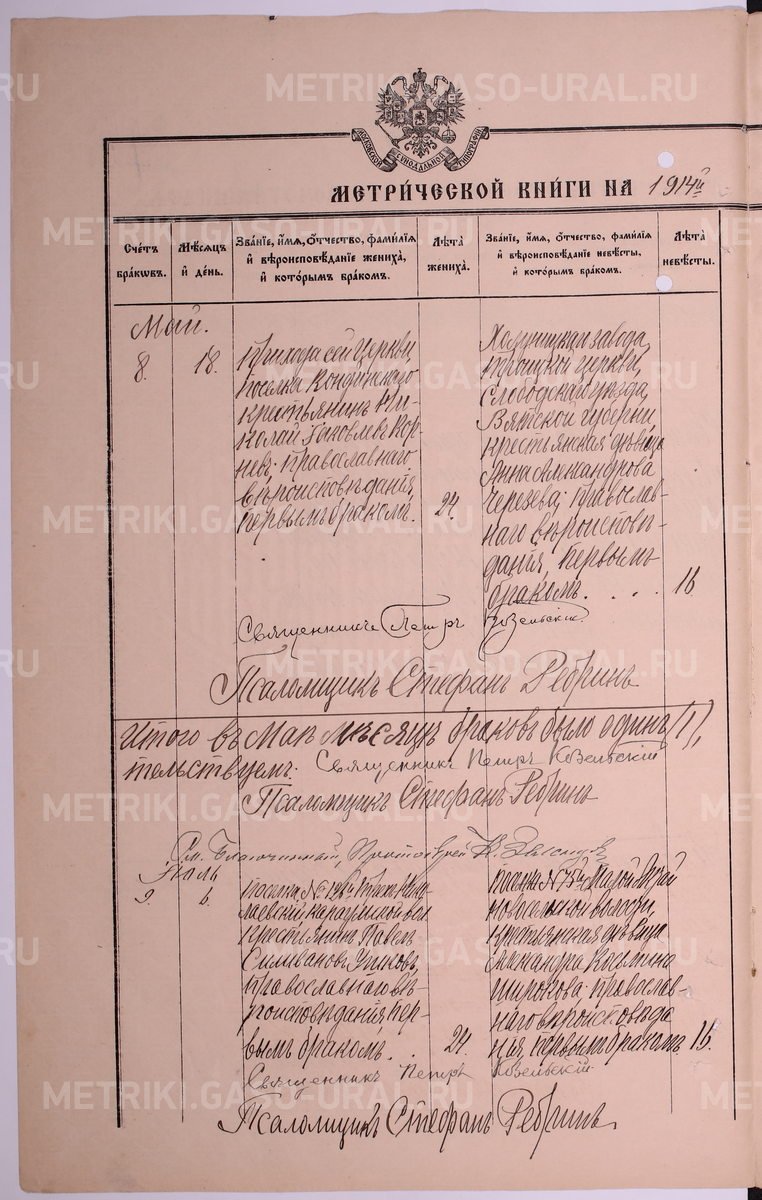 МЕТРИЧЕСКОЙ КНИГИ НА 1914й
Счетъ браковъ.
Мѣсяцъ и день.
Званіе, имя, отчество, фамилія и вѣроисповѣданіе жениха, и которымъ бракомъ.
Лѣта жениха.
Званіе, имя, отчество, фамилія и вѣроисповѣданіе невѣсты, и которымъ бракомъ.
Лѣта невѣсты.
Май.
8. 18.
Прихода сей Церкви,
поселка Кондинскаго
крестьянинъ Ни-
колай Іаковлевъ Кор-
невъ; православнаго
вѣроисповѣданія,
первымъ бракомъ.
24.
завода,
Троицкой церкви,
Слободскаго уѣзда,
Вятской губерніи,
крестьянская дѣвица
Анна Александрова
Черезева; православ-
наго вѣроисповѣ-
данія, первымъ
бракомъ. . . .
16
Священникъ Петръ Козельскій
Псаломщикъ Стефанъ Ребринъ
Итого въ Маѣ мѣсяцѣ браковъ было одинъ (1),
тельствуемъ: Священникъ Петръ Козельскій
Псаломщикъ Стефанъ Ребринъ
Благочинный, Протоіерей
9. 6.
крестьянинъ Павелъ
Силивановъ
православнаго вѣ-
роисповѣданія, пер-
вымъ бракомъ. . .
24.
волости,
крестьянская дѣвица
Александра Козмина
Широкова; православ-
наго вѣроисповѣда-
нія, первымъ бракомъ.
16.
Священникъ Петръ Козельскій
Псаломщикъ Стефанъ Ребринъ
METRIKI.GASO-URAL.RU